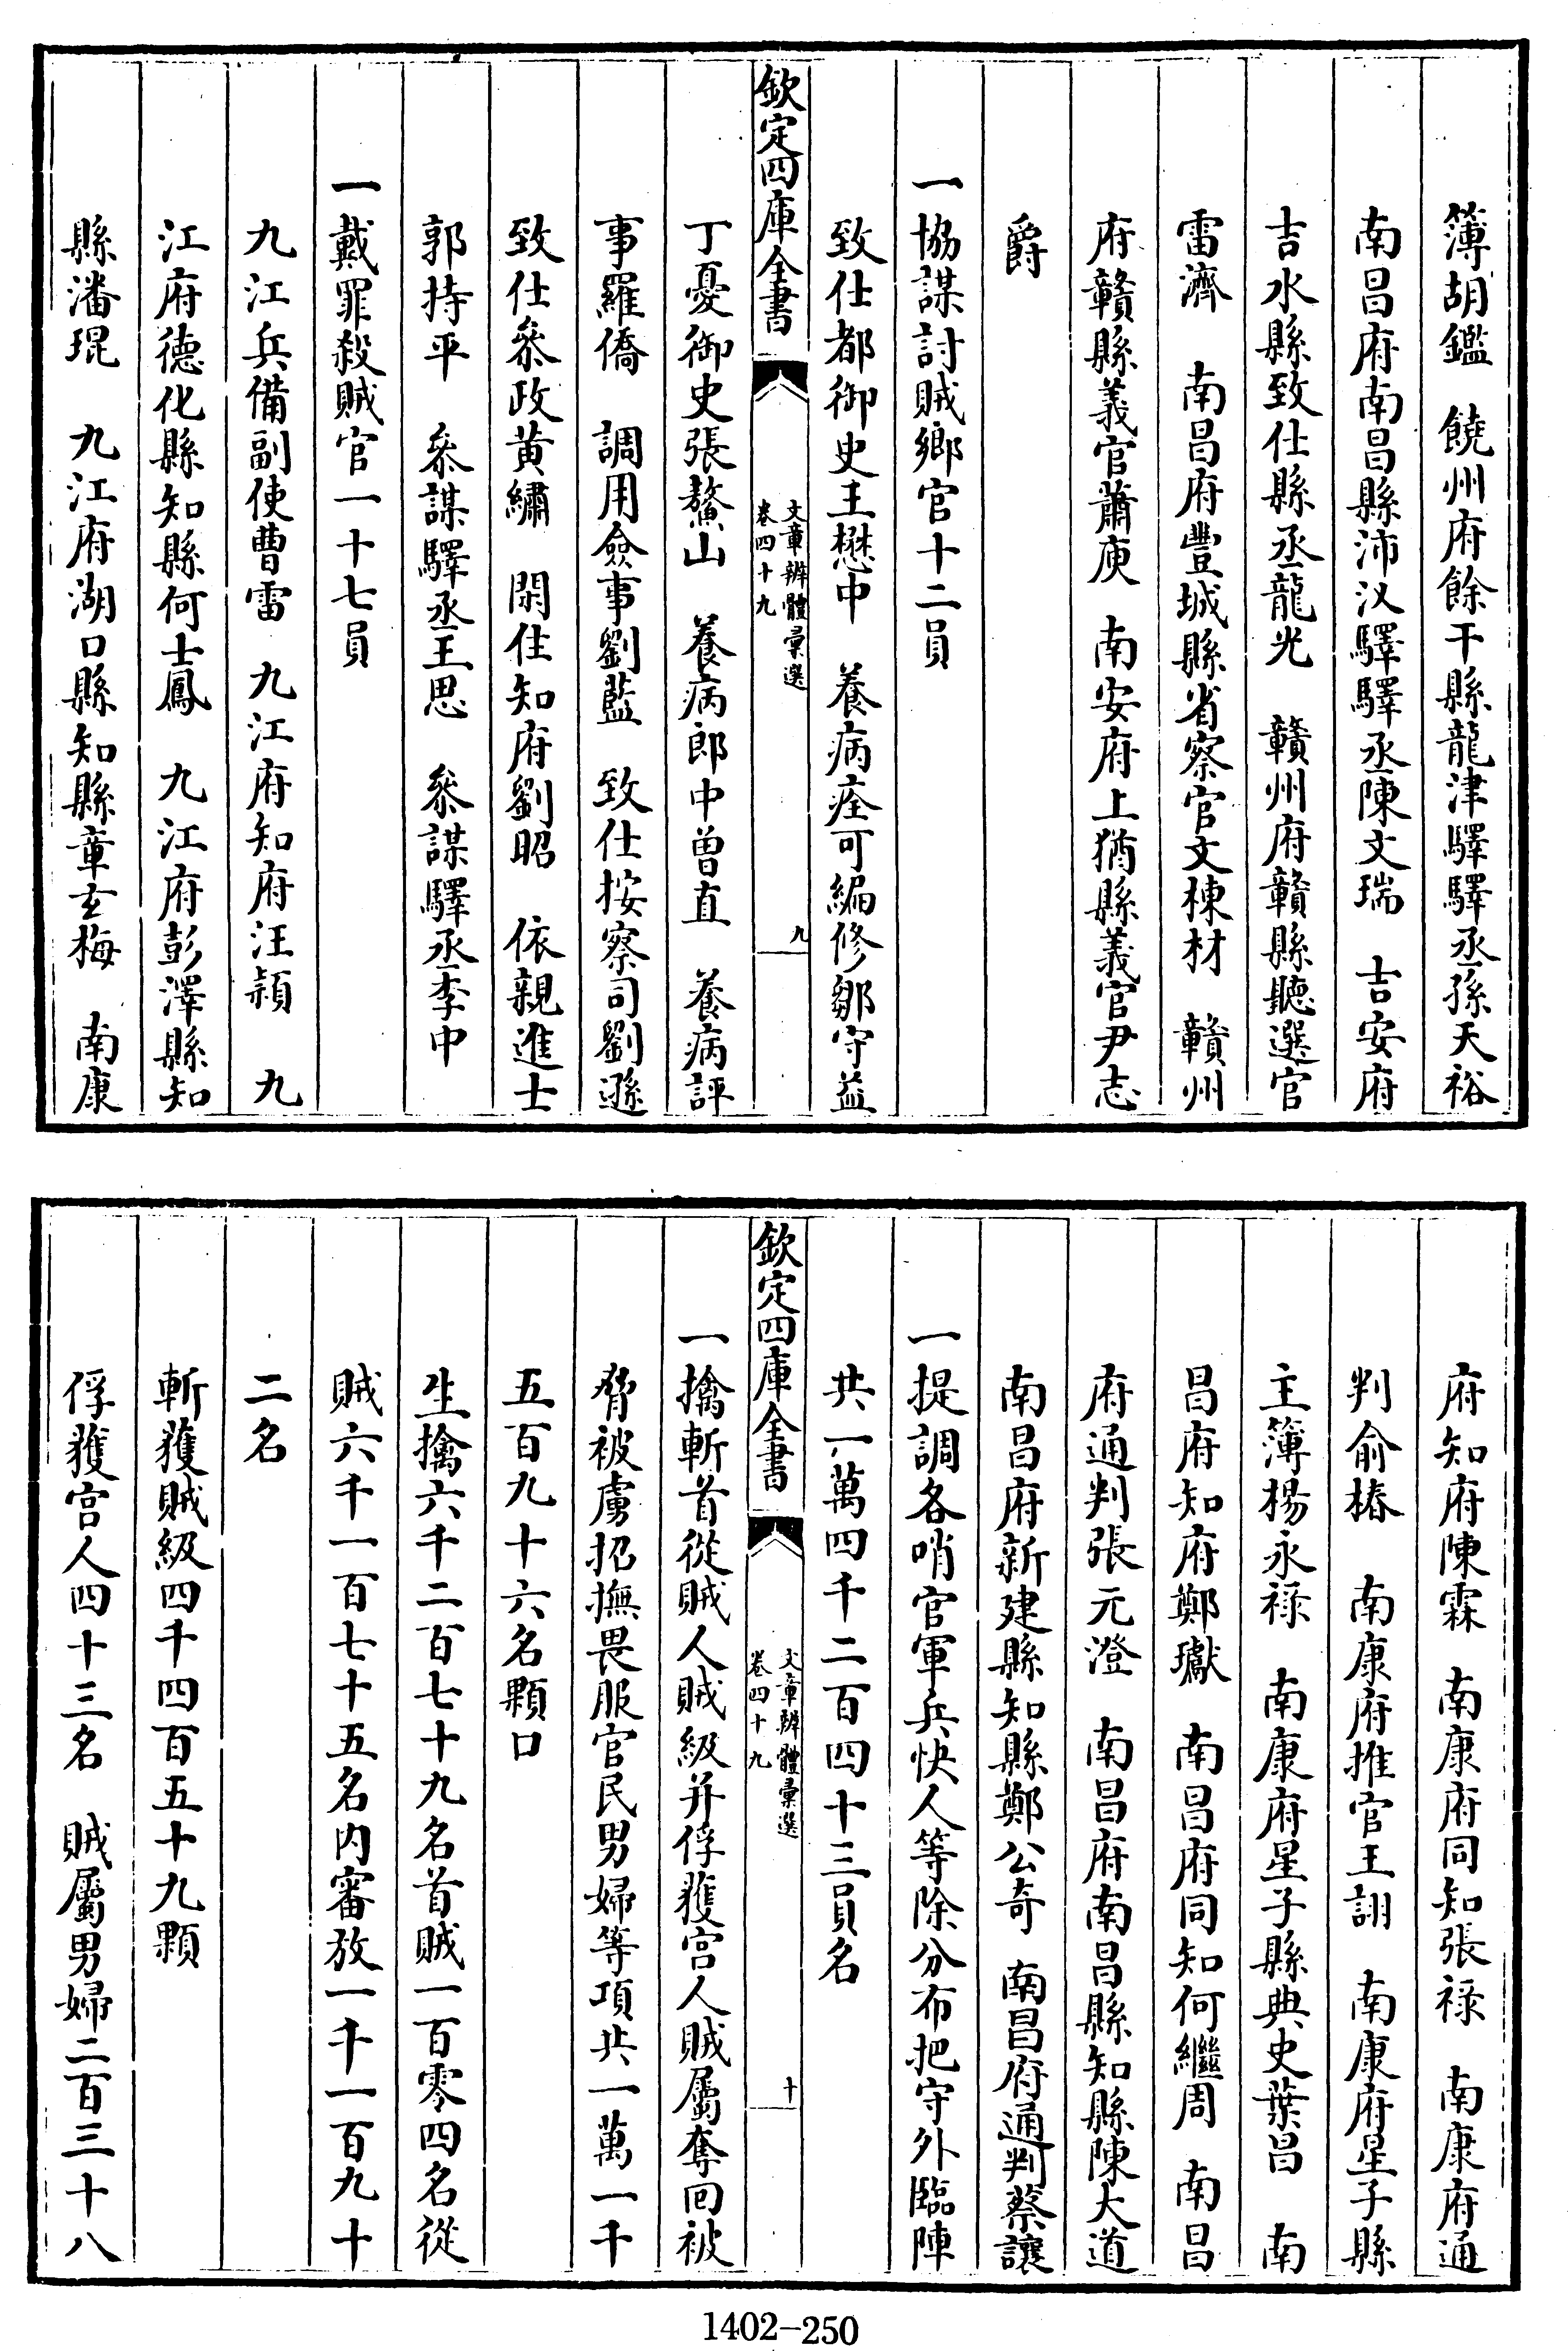 簿胡鑑　饒州府餘干縣龍津驛驛丞孫天裕
南昌府南昌縣沛汊驛驛丞陳文瑞　吉安府
吉水縣致仕縣丞龍光　贛州府贛縣聽選官
雷濟　南昌府豐城縣省察官文棟材　贛州
府贛縣義官蕭庾　南安府上猶縣義官尹志
爵
一協謀討賊鄉官十二員
致仕都御史王懋中　養病痊可編修鄒守益
欽定四庫全書
文章辨體彙選
卷四十九
九
丁憂御史張鰲山　養病郎中曾直　養病評
事羅僑　調用僉事劉藍　致仕按察司劉遜
致仕叅政黄繡　閑住知府劉昭　依親進士
郭持平　叅謀驛丞王思　叅謀驛丞李中
一戴罪殺賊官一十七員
九江兵備副使曹雷　九江府知府汪頴　九
江府德化縣知縣何士鳳　九江府彭澤縣知
縣潘琨　九江府湖口縣知縣章玄梅　南康
府知府陳霖　南康府同知張祿　南康府通
判俞椿　南康府推官王詡　南康府星子縣
主簿楊永祿　南康府星子縣典史葉昌　南
昌府知府鄭瓛　南昌府同知何繼周　南昌
府通判張元澄　南昌府南昌縣知縣陳大道
南昌府新建縣知縣鄭公奇　南昌府通判蔡讓
一提調各哨官軍兵快人等除分布把守外臨陣
共一萬四千二百四十三員名
欽定四庫全書
文章辨體彙選
卷四十九
十
一擒斬首從賊人賊級并俘獲宫人賊屬奪回被
脅被虜招撫畏服官民男婦等項共一萬一千
五百九十六名顆口
生擒六千二百七十九名首賊一百零四名從
賊六千一百七十五名内審放一千一百九十
二名
斬獲賊級四千四百五十九顆
俘獲宫人四十三名　賊屬男婦二百三十八
1402-250